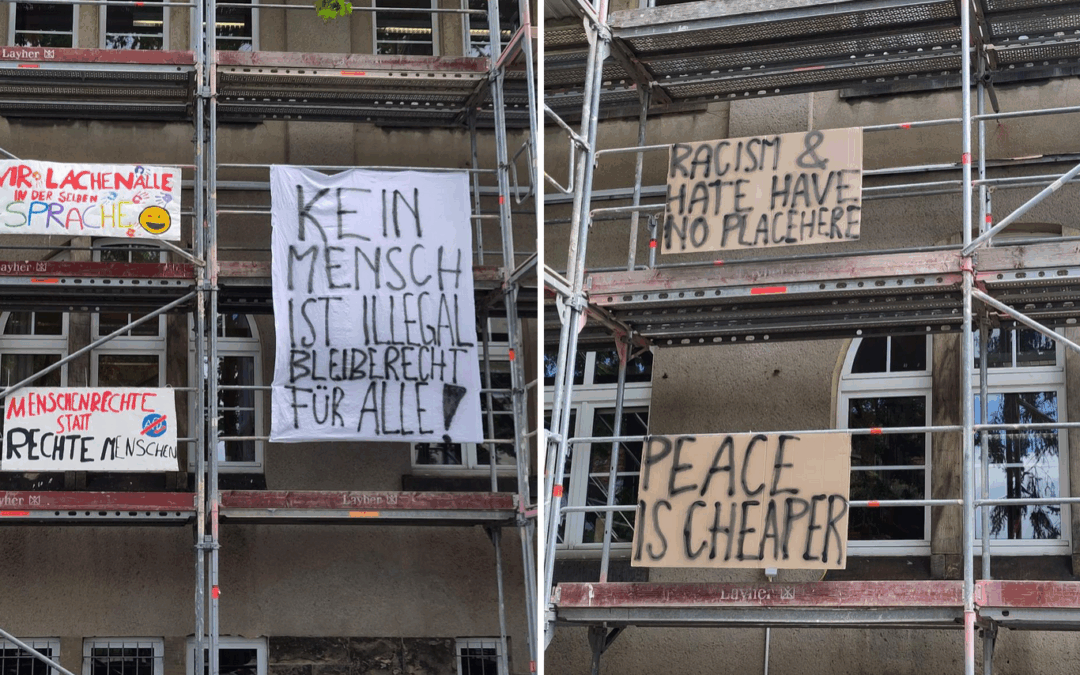 Layher
WIR LACHEN ALLE
IN DER SELBEN
SPRACHE
Layher
MENSCHENRECHTE
STATT
RECHTE MENSCHEN
KEIN
MENSCH
IST ILLEGAL
BLEIBERECHT
FÜR ALLE!
Layher
Layher
RACISM &
HATE HAVE
NO PLACE HERE
PEACE
IS CHEAPER
Layher